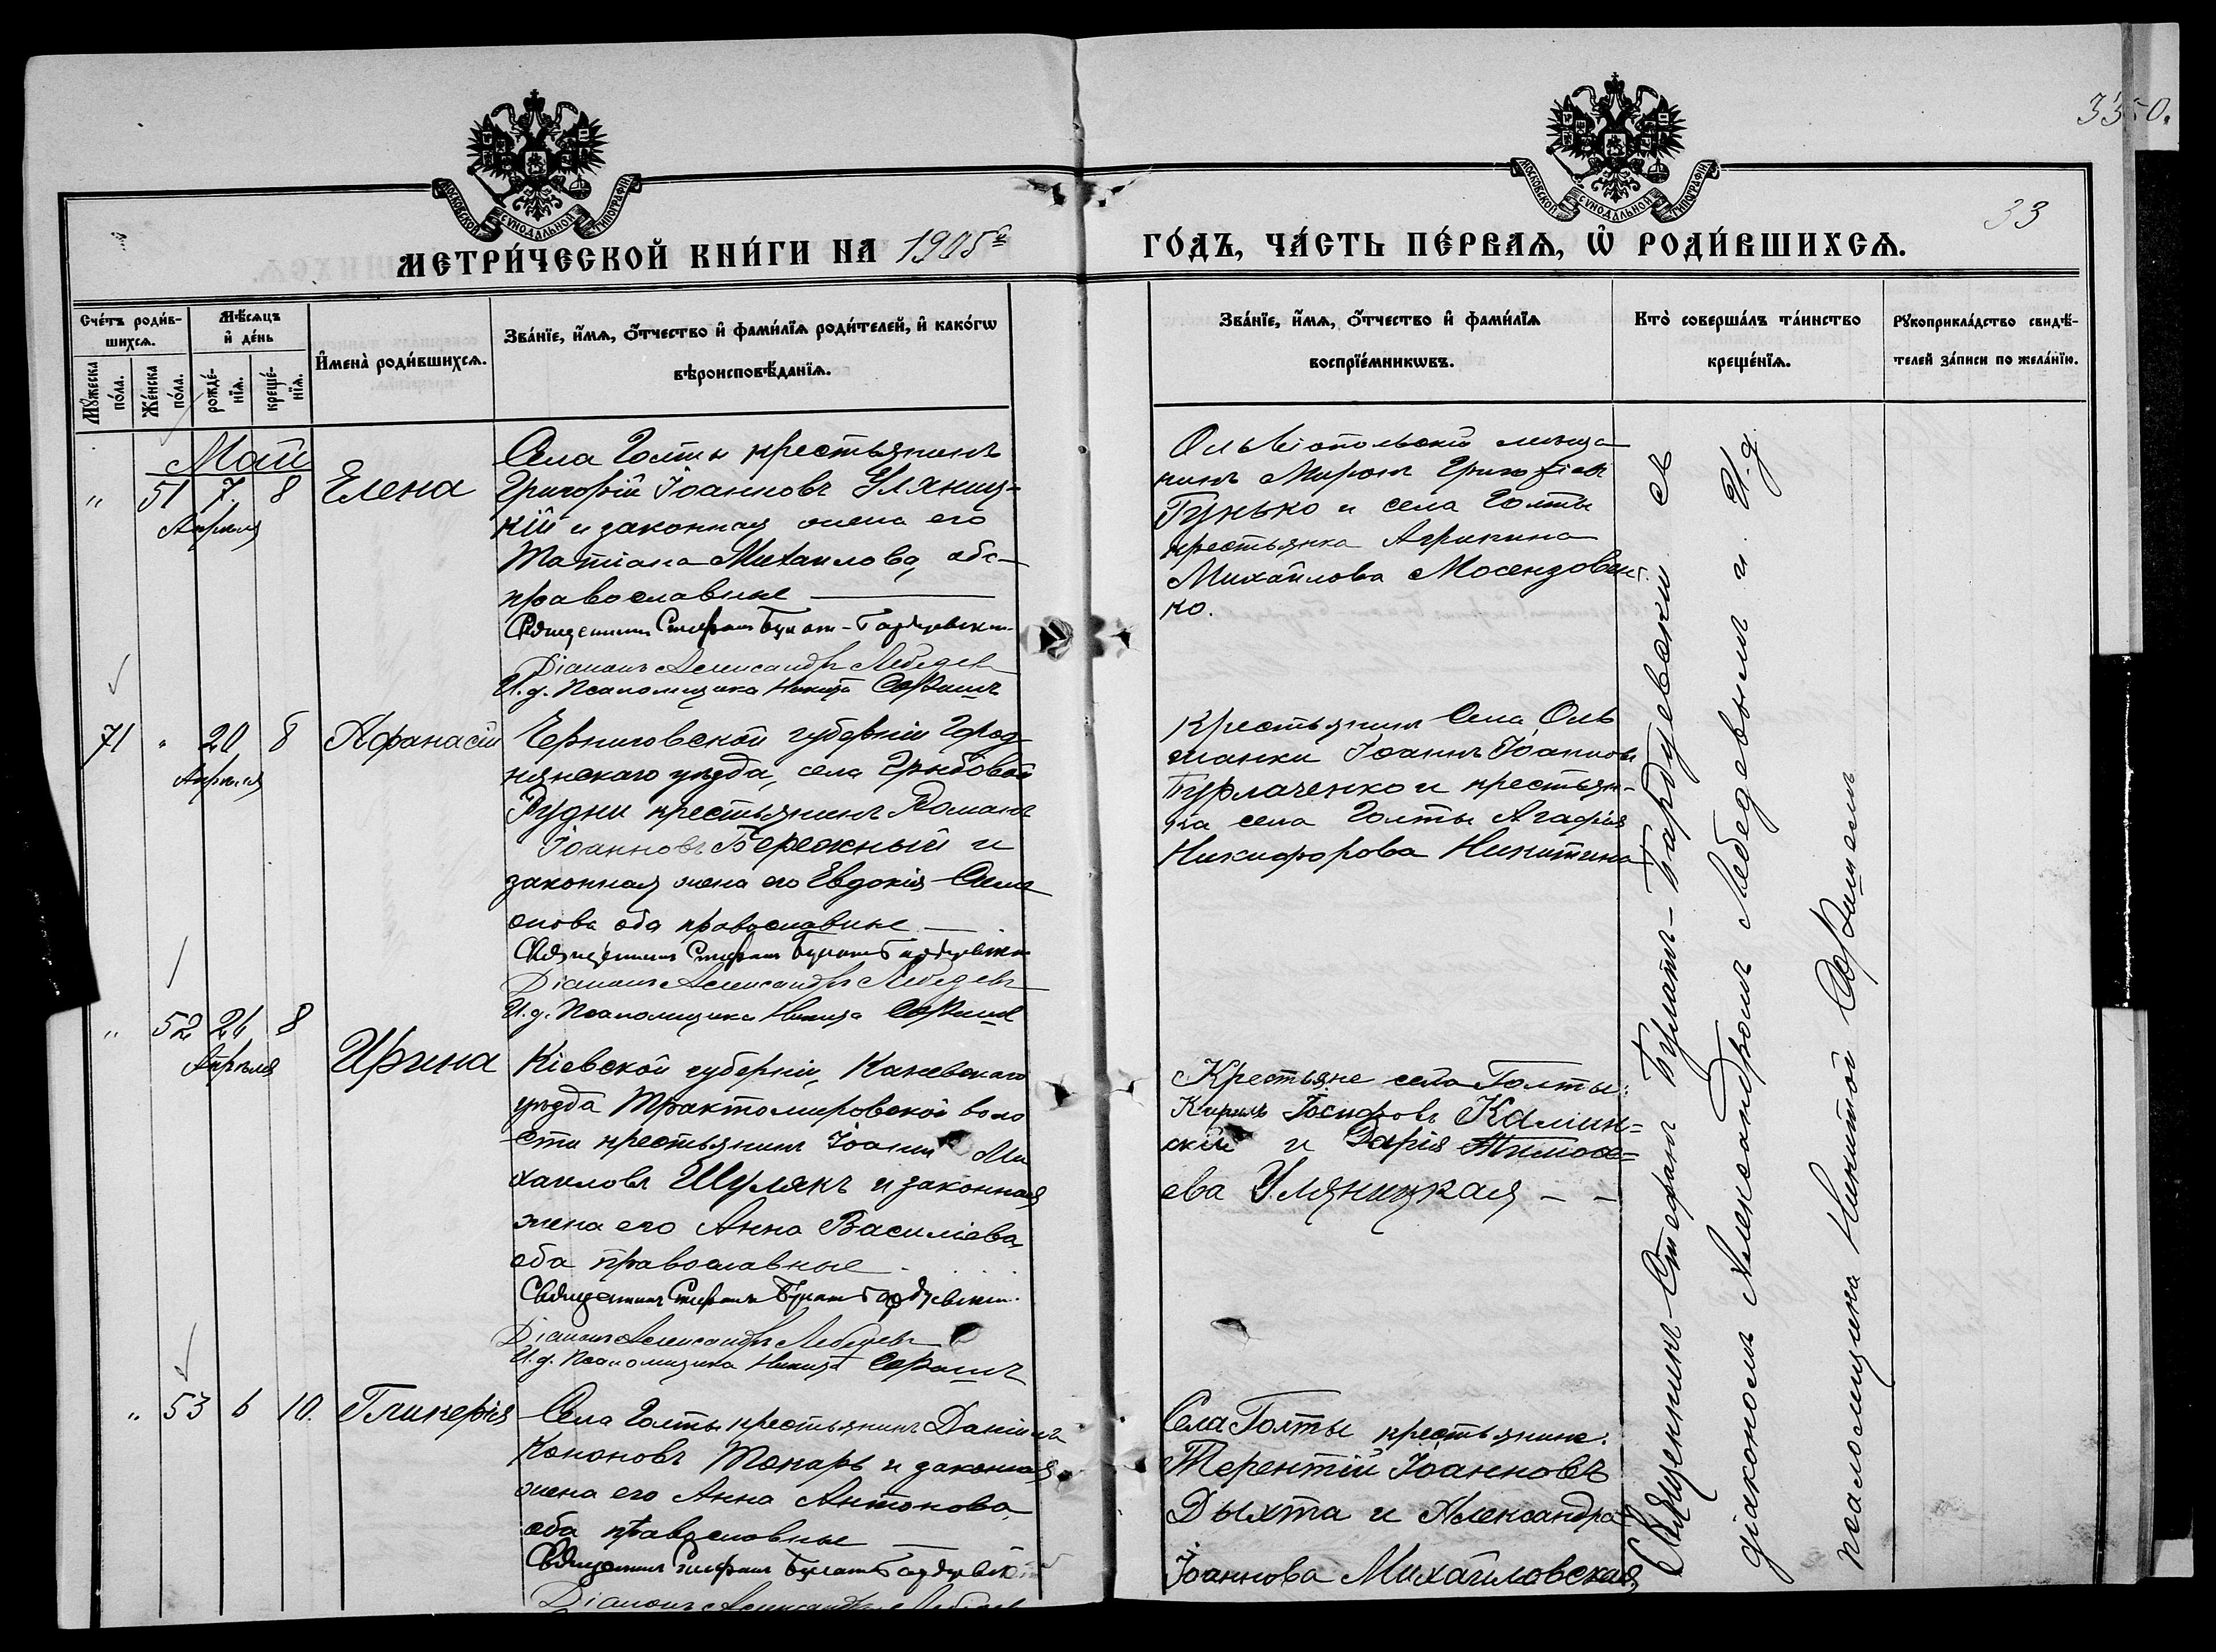 3350.
33
МОСКОВСКОЙ СѴНОДАЛЬНОЙ ТИПОГРАФІИ
МОСКОВСКОЙ СѴНОДАЛЬНОЙ ТИПОГРАФІИ
МЕТРИ́ЧЕСКОЙ КНИ́ГИ НА 1905й
ГО́ДЪ, ЧА́СТЬ ПЕ́РВАѦ, Ѡ҆ РОДИ́ВШИХСѦ.
Сче́тъ роди́в-
шихсѧ.
Мꙋ́жеска
по́ла.
Же́нска
по́ла.
Мѣ́сѧцъ
и҆ де́нь
рожде́-
нїѧ.
креще́-
нїѧ.
И҆мена̀ роди́вшихсѧ.
Зва́нїе, и҆́мѧ, о҆́тчество и҆ фами́лїѧ роди́телей, и҆ како́гѡ
вѣроисповѣ́данїѧ.
Зва́нїе, и҆́мѧ, о҆́тчество и҆ фами́лїѧ
воспрїе́мникѡвъ.
Кто̀ соверша́лъ та́инство
креще́нїѧ.
Рꙋкоприкла́дство свидѣ́-
телей за́писи по жела́нїю.
Май
" 51 7. 8 Елена
Апрѣля
Села Голты крестьянинъ
Григорій Іоанновъ Уляниц-
кій и законная жена его
Татіана Михаилова, оба
православные
Священникъ Стефанъ Булатъ-Бардуевскій
Діаконъ Александръ Лебедевъ
И. д. Псаломщика Никита
Ольвіопольскій мѣща
нинъ Миронъ Григоріевъ
Гунько и села Голты
крестьянка Агрипина
Михайлова Мосендовен
ко.
71 " 20 8 Афанасій
Апрѣля
Черниговской губерніи Город
нянскаго уѣзда, села Грибовой
Рудни крестьянинъ Романъ
Іоанновъ Бережный и
законная жена его Евдокія Симе
онова оба православные
Священникъ Стефанъ Булатъ Бардуевскій
Діаконъ Александръ Лебедевъ
И. д. Псаломщика Никита
Крестьянинъ села Оль
шанки Іоаннъ Іоанновъ
Бурлаченко и крестьян-
ка села Голты Агафія
Никифорова Никитина
" 52 24 8
Апрѣля
Ирина
Кіевской губерніи, Каневскаго
уѣзда Трактомировской воло
сти крестьянинъ Іоаннъ Ми
хаиловъ Шулякъ и законная
жена его Анна Василіева
оба православные
Священникъ Стефанъ Булатъ Бардуевскій.
Діаконъ Александръ Лебедевъ
И. д. Псаломщика Никита
Крестьяне села Голты:
Кирилъ Іосифовъ Камин=
скій и Дарія Тимофе=
ева Уляницкая - -
" 53 6 10. Гликерія
Села Голты крестьянинъ Даніилъ
Кононовъ Токарь и законная
жена его Анна Антонова,
оба православные
Священникъ Стефанъ Булатъ Бардуевскій
Діаконъ Александръ Лебедевъ
Села Голты крестьяне:
Терентій Іоанновъ
Дыхта и Александра
Іоаннова Михайловская,
Священникъ Стефанъ Булатъ-Бардуевскій съ
діакономъ Александромъ Лебедевымъ и. И. д.
псаломщика Никитой